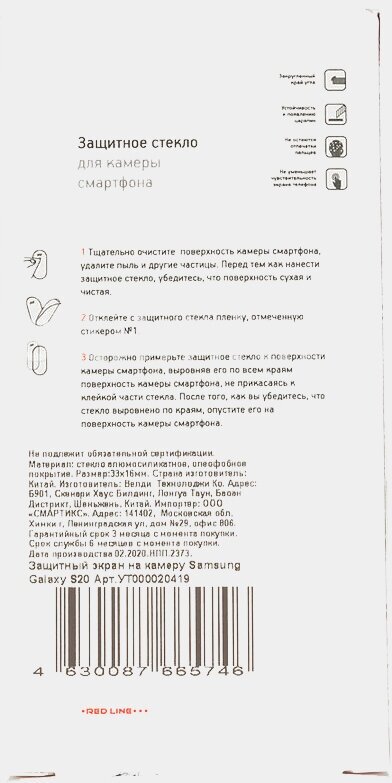 Закругленный
край угла
Устойчивость
к появлению
царапин
Не остаются
отпечатки
пальцев
Не уменьшает
чувствительность
экрана телефона
Защитное стекло
для камеры
смартфона
1 Тщательно очистите поверхность камеры смартфона,
удалите пыль и другие частицы. Перед тем как нанести
защитное стекло, убедитесь, что поверхность сухая и
чистая.
2 Отклейте с защитного стекла пленку, отмеченную
стикером №1.
3 Осторожно примерьте защитное стекло к поверхности
камеры смартфона, выровняв его по всем краям
поверхность камеры смартфона, не прикасаясь к
клейкой части стекла. После того, как вы убедитесь, что
стекло выровнено по краям, опустите его на
поверхность камеры смартфона.
Не подлежит обязательной сертификации.
Материал: стекло алюмосиликатное, олеофобное
покрытие. Размер:33х16мм. Страна изготовитель:
Китай. Изготовитель: Велди Технолоджи Ко. Адрес:
Б901, Скянари Хаус Билдинг, Лонгуа Таун, Баоан
Дистрикт, Шеньжень, Китай. Импортер: ООО
«СМАРТИКС». Адрес: 141402, Московская обл,
Химки г, Ленинградская ул, дом №29, офис 806.
Гарантийный срок 3 месяца с момента покупки.
Срок службы 6 месяцев с момента покупки.
Дата производства 02.2020.НПП.2373.
Защитный экран на камеру Samsung
Galaxy S20 Арт.УТ000020419
4 630087 665746
REDLINE